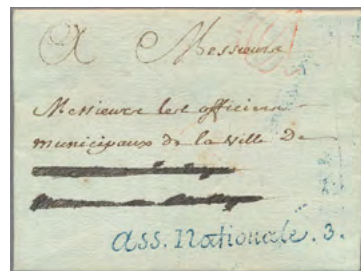 A Messieurs
Messieurs les officiers
municipaux de la Ville de
Ass. Nationale. 3.